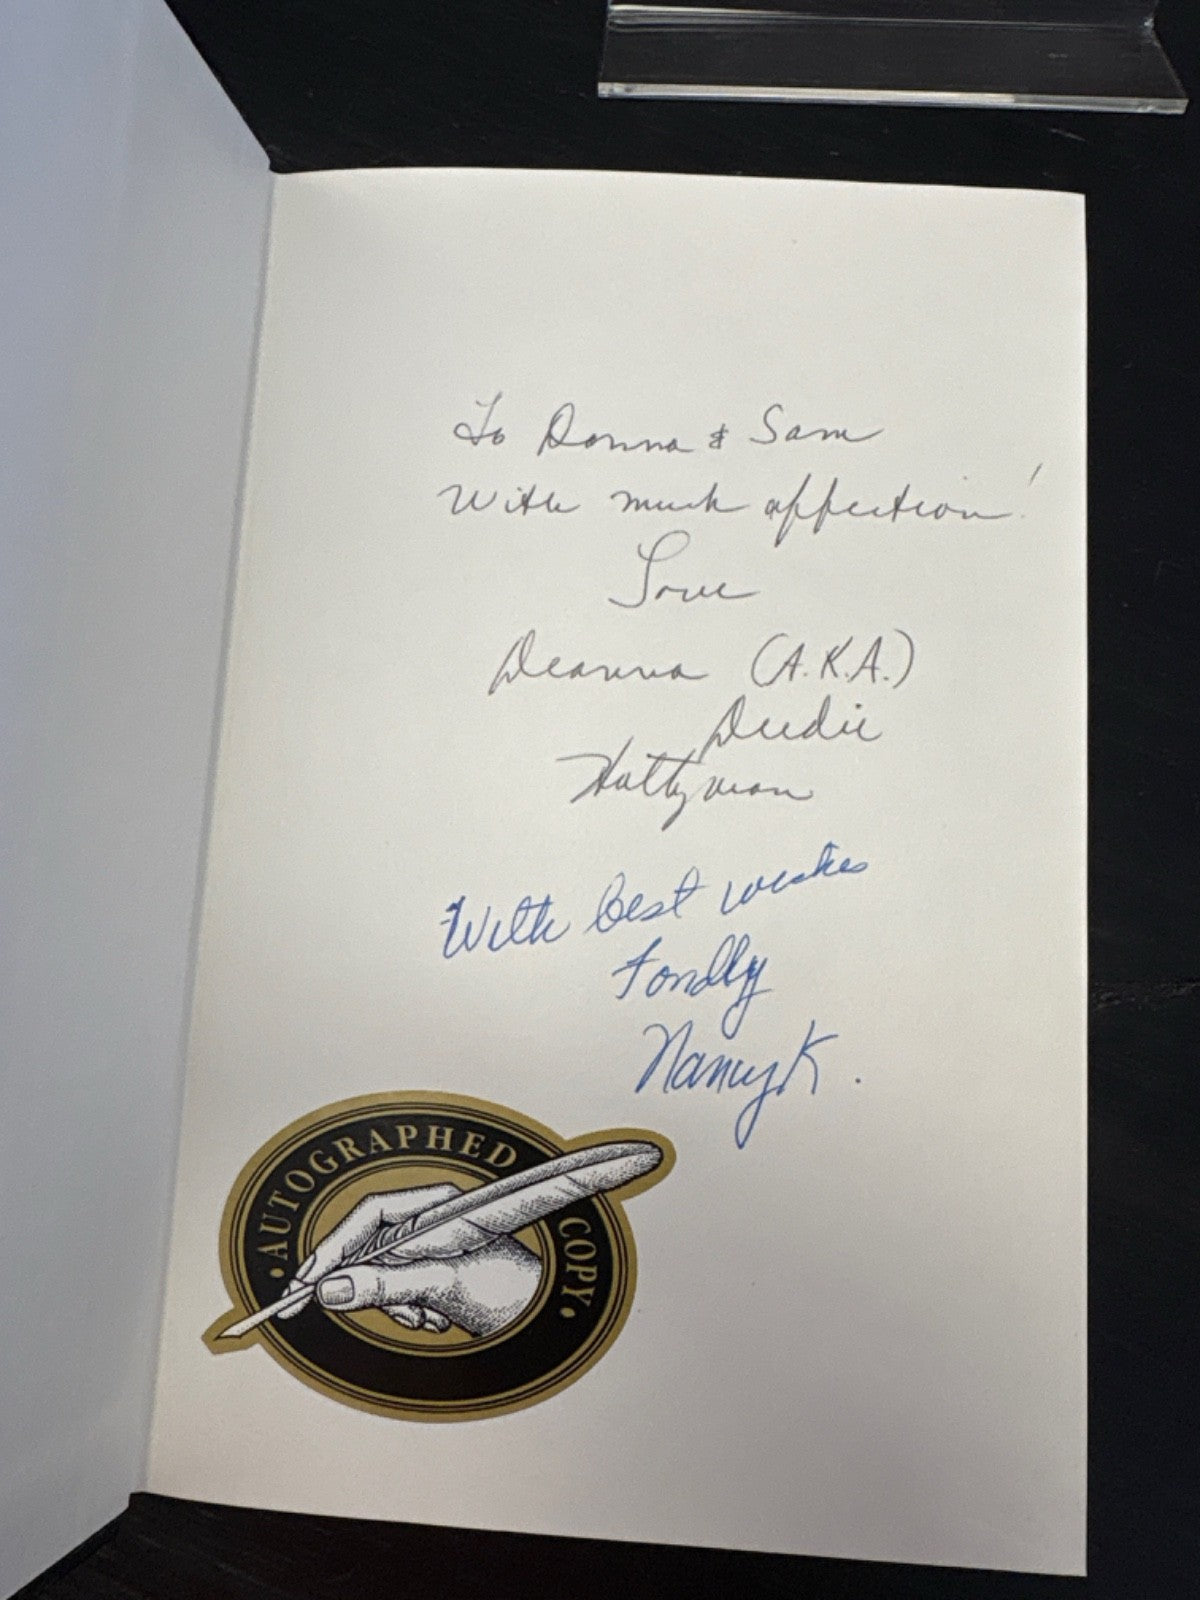 To Donna & Sam
With much affection!
Love
Deanna (A.K.A.)
Deedie
With best wishes
Fondly
Nancy K.
AUTOGRAPHED COPY